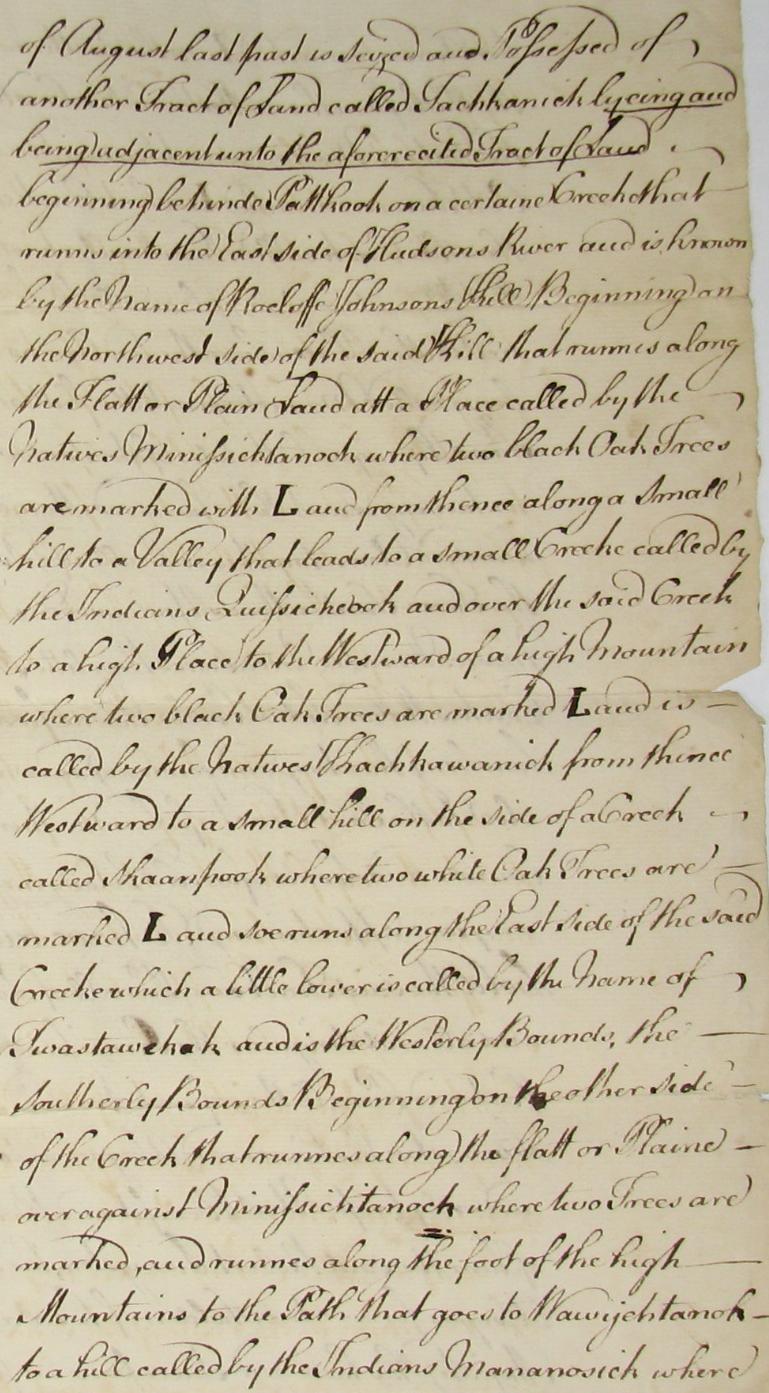 of August last past is seized and Possessed of
another Tract of Land called Tachkanick lyeing and
being adjacent unto the aforerecited Tract of Land
beginning behinde Pattkook on a certaine Creeke that
runns into the East side of Hudsons River and is known
by the Name of Roeloffe Johnsons Kill Beginning on
the Northwest side of the said Kill that runnes along
the Flatt or Plain Land att a Place called by the
Natives Minissichtanock where two black Oak Trees
are marked with L and from thence along a small
hill to a Valley that leads to a small Creeke called by
the Indians Quissichkook and over the said Creek
to a high Place to the Westward of a high Mountain
where two black Oak Trees are marked L and is
called by the Natives Kachkawanick from thence
Westward to a small hill on the side of a Creek
called Skaanpook where two white Oak Trees are
marked L and soe runs along the East side of the said
Creeke which a little lower is called by the Name of
Twastawekak and is the Westerly Bounds, the
Southerly Bounds Beginning on the other side
of the Creek that runnes along the flatt or Plaine
over against Minissichtanock where two Trees are
marked, and runnes along the foot of the high
Mountains to the Path that goes to Wawijchtanok
to a hill called by the Indians Mananosick where